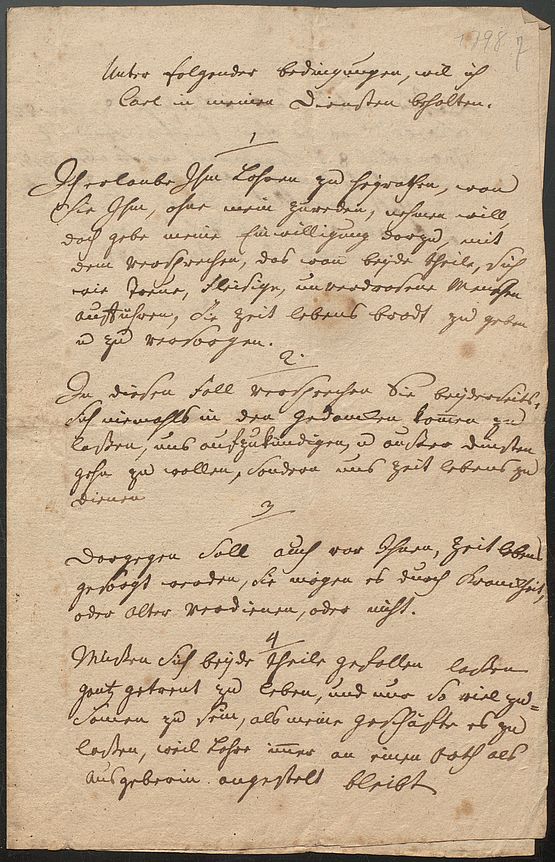 1798
7
Unter folgender bedingungen, wil ich
Carl in meinen Diensten behalten.
1
Ich erlaube Ihm Lohren zu heyrathen, wan
Sie Ihm, ohne mein zureden, nehmen will,
doch gebe meine Einwilligung darzu, mit
dem versprechen, das wan beyde theile, sich
wie treue, fleisige, unverdrosene Menschen
aufführen, Sie zeit lebens brodt zu geben
u zu versorgen.
2.
In diesen fall versprechen Sie beyderseits,
sich niemahls in den gedancken kommen zu
laßen, uns aufzukündigen, u auser dinsten
gehn zu wollen, sondern uns zeit lebens zu
dienen
3
Dargegen soll auch vor Ihnen, zeit lebens
gesorgt werden, Sie mögen es durch Kranckheit,
oder alter verdienen, oder nicht.
4
Müßen sich beyde theile gefallen laßen
gantz getrent zu leben, und nur so viel zu=
samen zu sein, als meine geschäfte es zu
laßen, weil Lohre immer an einen orth als
ausgeberin angestelt bleibt